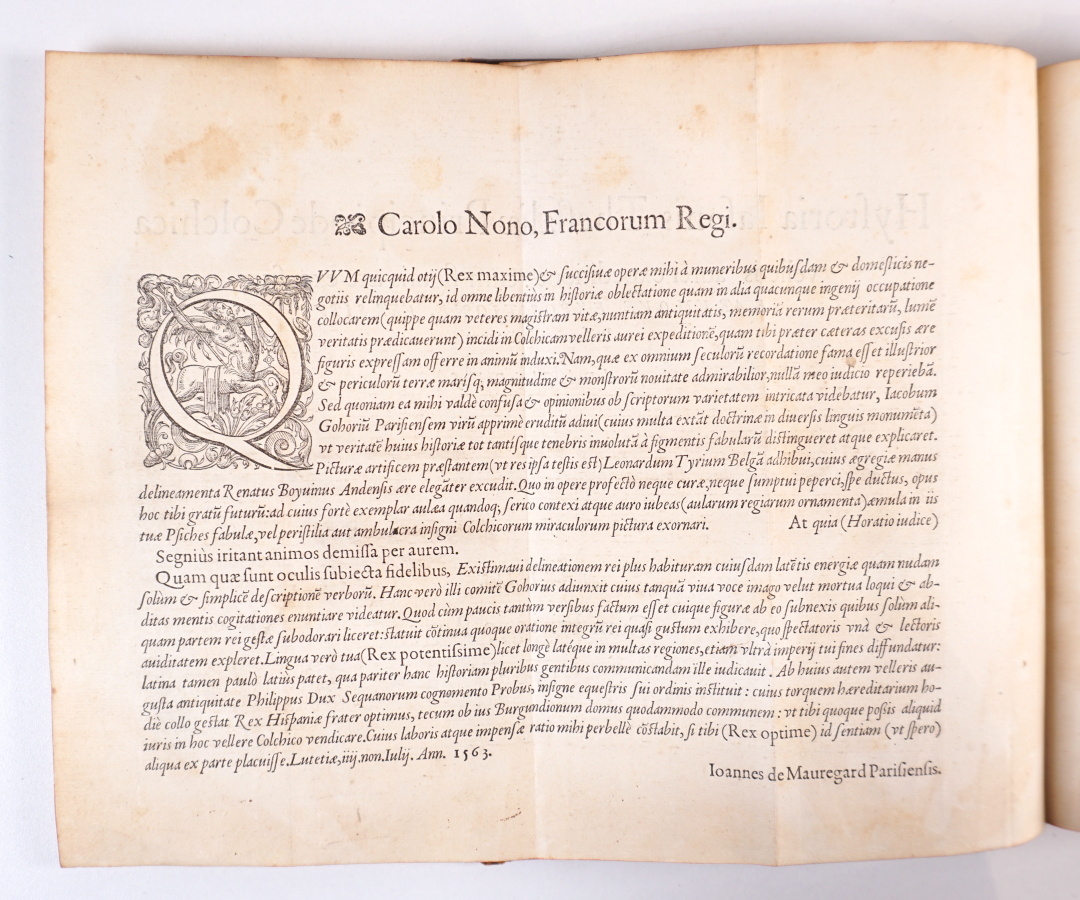 Carolo Nono, Francorum Regi.
QVVM quicquid otij (Rex maxime) & succisiuæ operæ mihi à muneribus quibusdam & domesticis ne-
gotiis relinquebatur, id omne libentiùs in historiæ oblectatione quam in alia quacunque ingenij occupatione
collocarem (quippe quam veteres magistram vitæ, nuntiam antiquitatis, memoriā rerum præteritarū, lumē
veritatis prædicauerunt) incidi in Colchicam velleris aurei expeditionē, quam tibi præter cæteras excusis ære
figuris expressam offerre in animū induxi. Nam, quæ ex omnium seculorū recordatione fama esset illustrior
& periculorū terræ marisq; magnitudine & monstrorū nouitate admirabilior, nullā meo iudicio reperiebā.
Sed quoniam ea mihi valdè confusa & opinionibus ob scriptorum varietatem intricata videbatur, Iacobum
Gohoriū Parisiensem virū apprimè eruditū adiui (cuius multa extāt doctrinæ in diuersis linguis monumēta)
vt veritatē huius historiæ tot tantisque tenebris inuolutā à figmentis fabularū distingueret atque explicaret.
Picturæ artificem præstantem (vt res ipsa testis est) Leonardum Tyrium Belgā adhibui, cuius ægregiæ manus
delineamenta Renatus Boyuinus Andensis ære elegāter excudit. Quo in opere profectò neque curæ, neque sumptui peperci, spe ductus, opus
hoc tibi gratū futurū: ad cuius fortè exemplar aulæa quandoq; serico contexi atque auro iubeas (aularum regiarum ornamenta) æmula in iis
tuæ Psiches fabulæ, vel peristilia aut ambulacra insigni Colchicorum miraculorum pictura exornari. At quia (Horatio iudice)
Segniùs iritant animos demissa per aurem.
Quam quæ sunt oculis subiecta fidelibus, Existimaui delineationem rei plus habituram cuiusdam latētis energiæ quam nudam
solùm & simplicē descriptionē verborū. Hanc verò illi comitē Gohorius adiunxit cuius tanquā viua voce imago velut mortua loqui & ab-
ditas mentis cogitationes enuntiare videatur. Quod cùm paucis tantùm versibus factum esset cuique figuræ ab eo subnexis quibus solùm ali-
quam partem rei gestæ subodorari liceret: statuit cōtinua quoque oratione integrū rei quasi gustum exhibere, quo spectatoris vnà & lectoris
auiditatem expleret. Lingua verò tua (Rex potentissime) licet longè latéque in multas regiones, etiam vltrà imperij tui fines diffundatur:
latina tamen paulò latiùs patet, qua pariter hanc historiam pluribus gentibus communicandam ille iudicauit. Ab huius autem velleris au-
gusta antiquitate Philippus Dux Sequanorum cognomento Probus, insigne equestris sui ordinis instituit: cuius torquem hæreditarium ho-
diè collo gestat Rex Hispaniæ frater optimus, tecum ob ius Burgundionum domus quodammodo commune: vt tibi quoque possis aliquid
iuris in hoc vellere Colchico vendicare. Cuius laboris atque impensæ ratio mihi perbellè cōstabit, si tibi (Rex optime) id sentiam (vt spero)
aliqua ex parte placuisse. Lutetiæ, iiij. non. Iulij. Ann. 1563.
Ioannes de Mauregard Parisiensis.